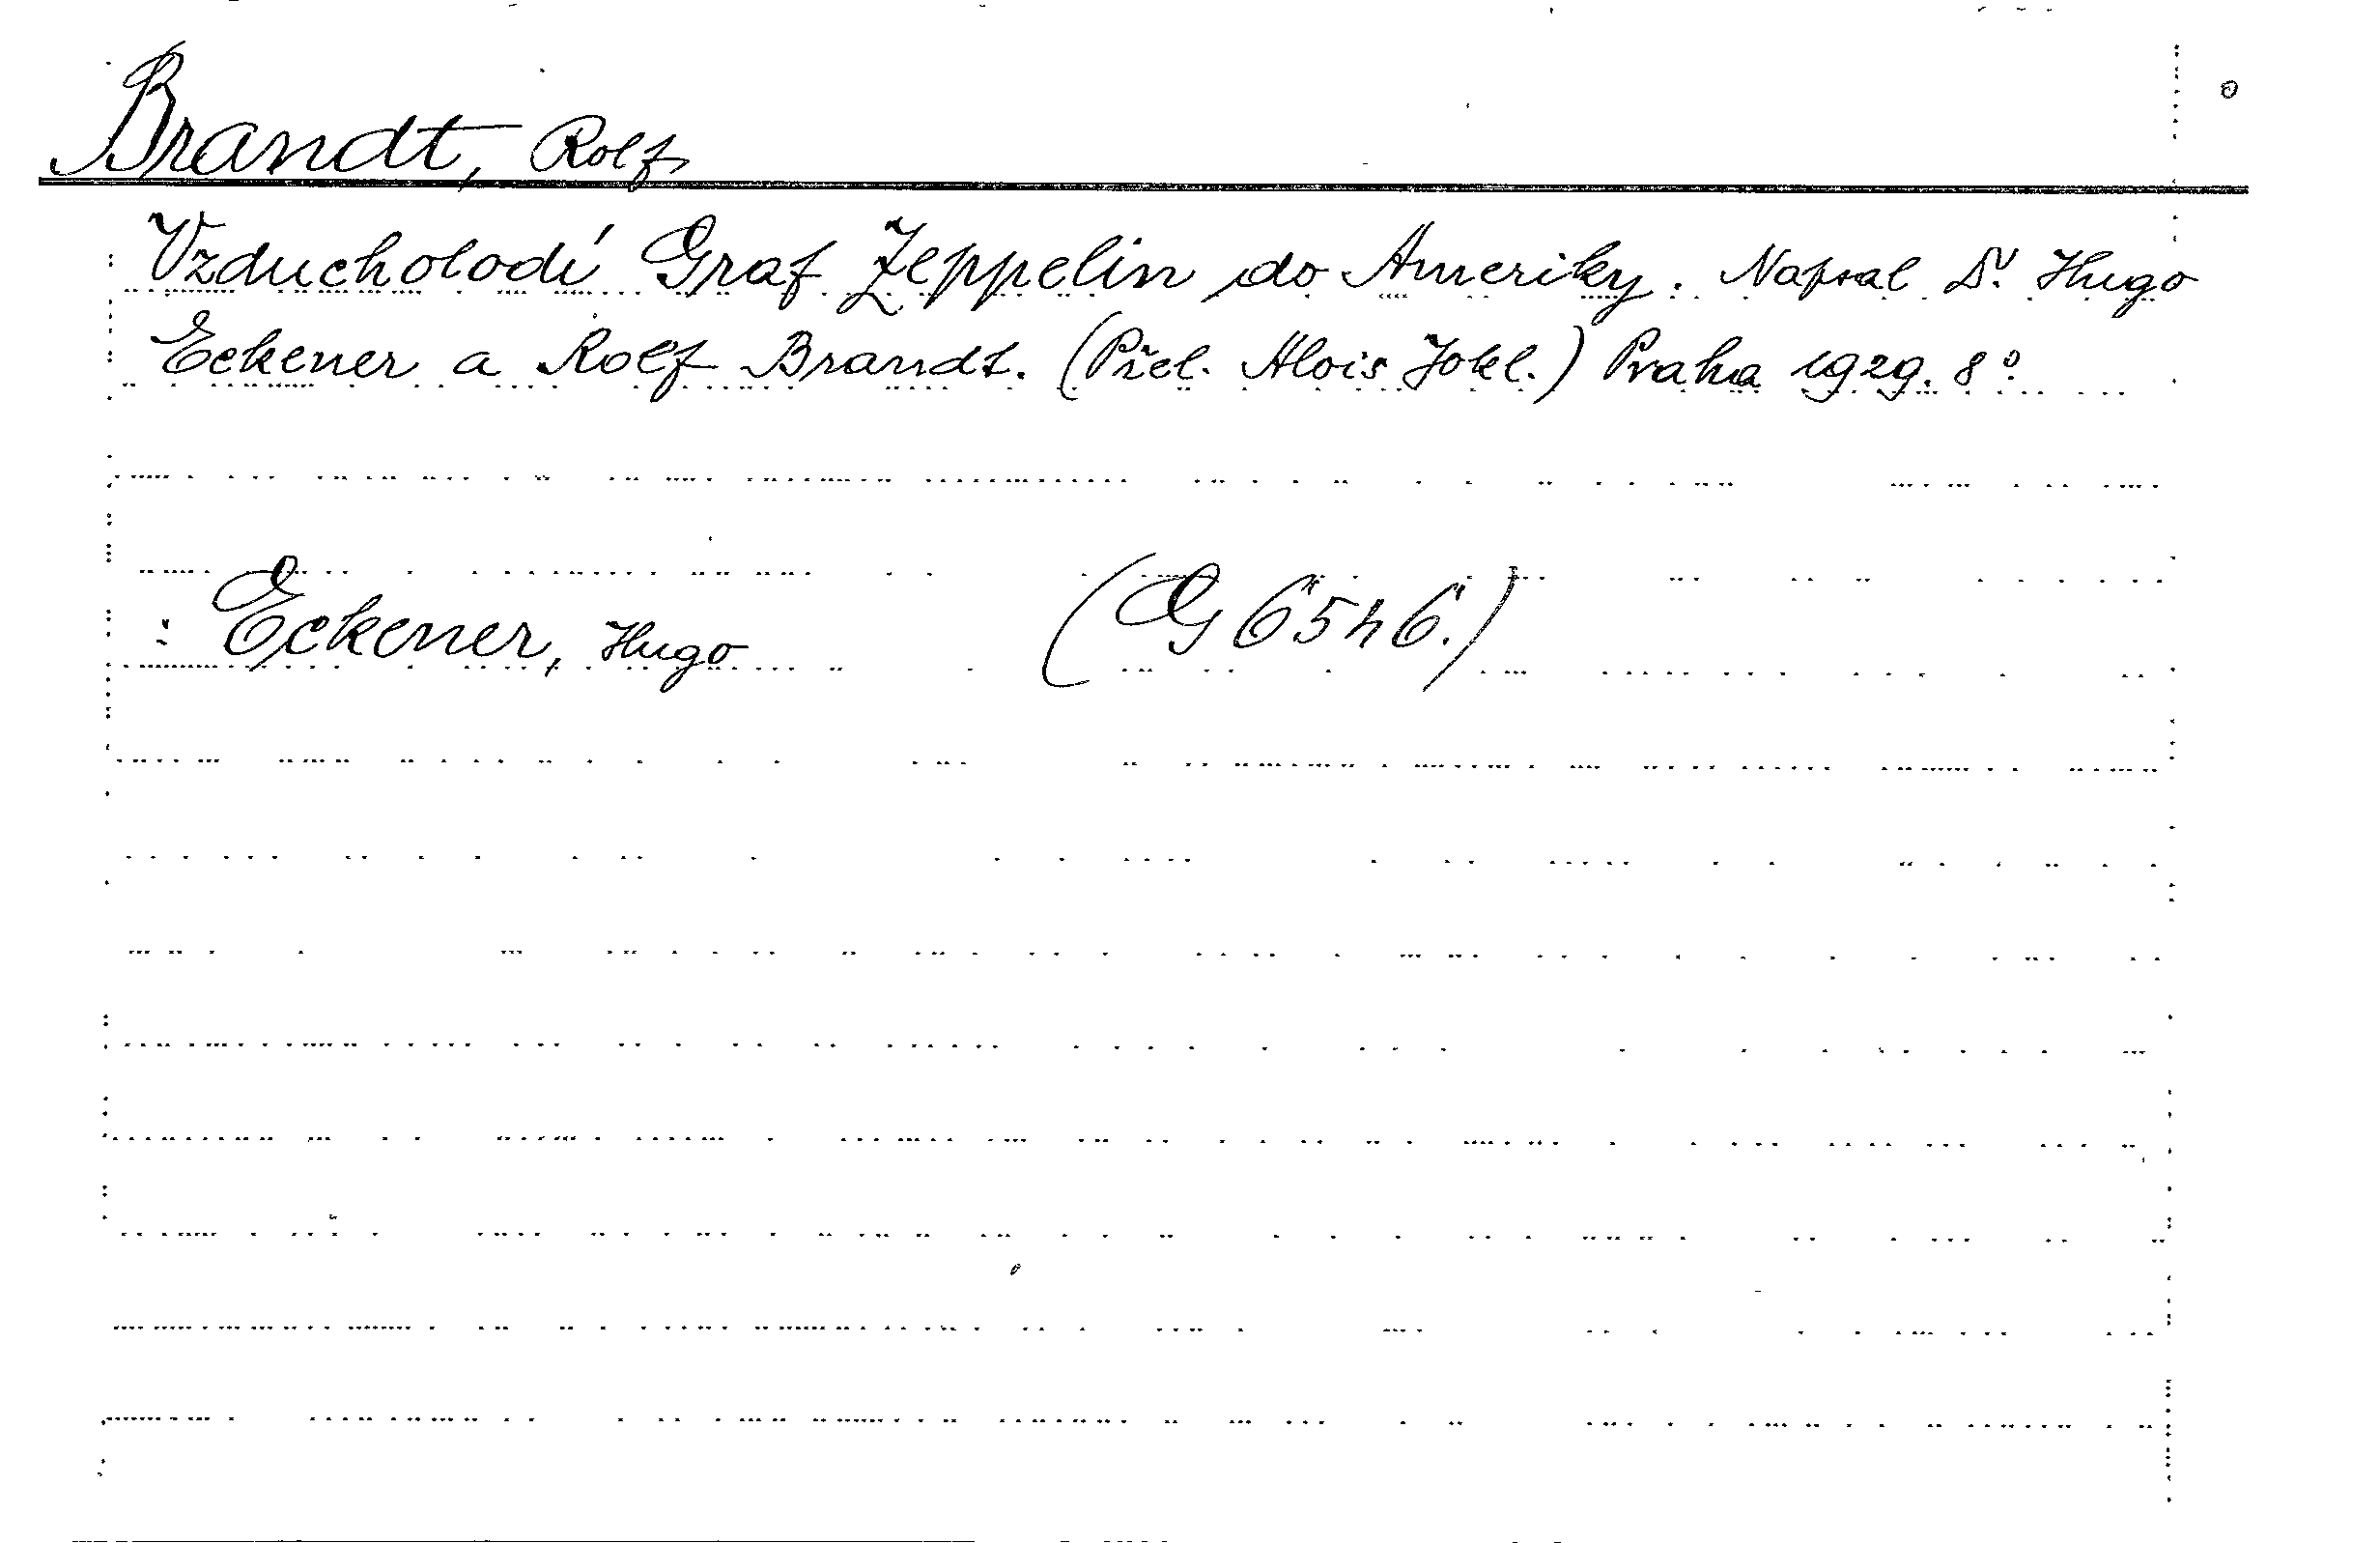 Brandt, Rolf
Vzducholodí Graf Zeppelin do Ameriky. Napsal Dr. Hugo
Eckener a Rolf Brandt. (Přel. Alois Jokl.) Praha 1929. 8°.
: Eckener, Hugo (G 6546.)